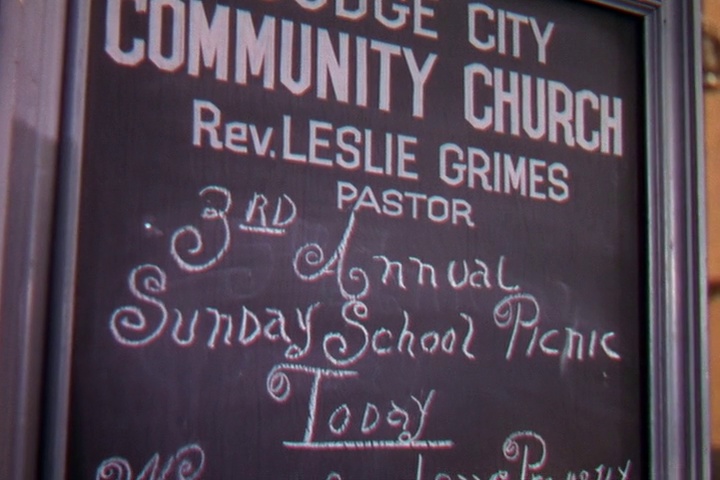 DODGE CITY
COMMUNITY CHURCH
Rev. LESLIE GRIMES
PASTOR
3RD Annual
Sunday School Picnic
Today